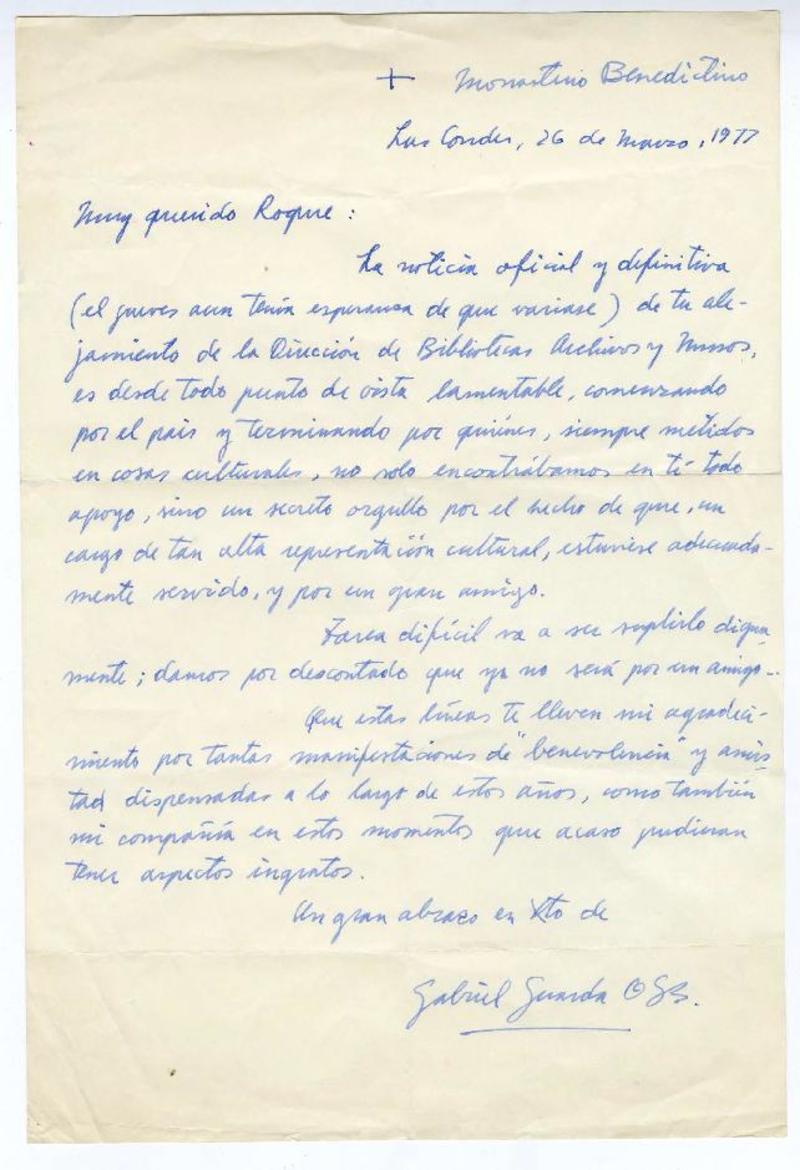 + Monasterio Benedictino
Las Condes, 26 de Marzo, 1977
Muy querido Roque:
La noticia oficial y definitiva
(el jueves aun tenía esperanza de que variase) de tu ale-
jamiento de la Dirección de Bibliotecas Archivos y Museos,
es desde todo punto de vista lamentable, comenzando
por el país y terminando por quiénes, siempre metidos
en cosas culturales, no solo encontrábamos en tí todo
apoyo, sino un secreto orgullo por el hecho de que, un
cargo de tan alta representación cultural, estuviese adecuada-
mente servido, y por un gran amigo.
Tarea difícil va a ser suplirlo digna-
mente; damos por descontado que ya no será por un amigo...
Que estas líneas te lleven mi agradeci-
miento por tantas manifestaciones de "benevolencia" y amis-
tad dispensadas a lo largo de estos años, como también
mi compañía en estos momentos que acaso pudieran
tener aspectos ingratos.
Un gran abrazo en Xto de
Gabriel Guarda OSB.